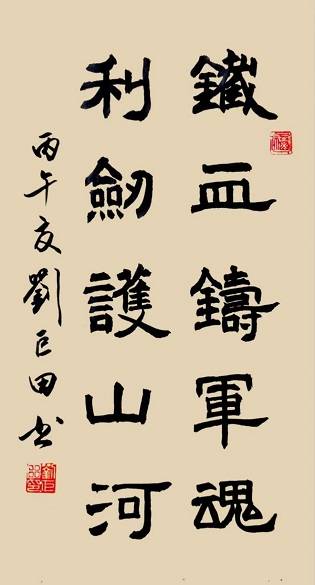 鐵血鑄軍魂
利劍護山河
丙午夏劉巨田书